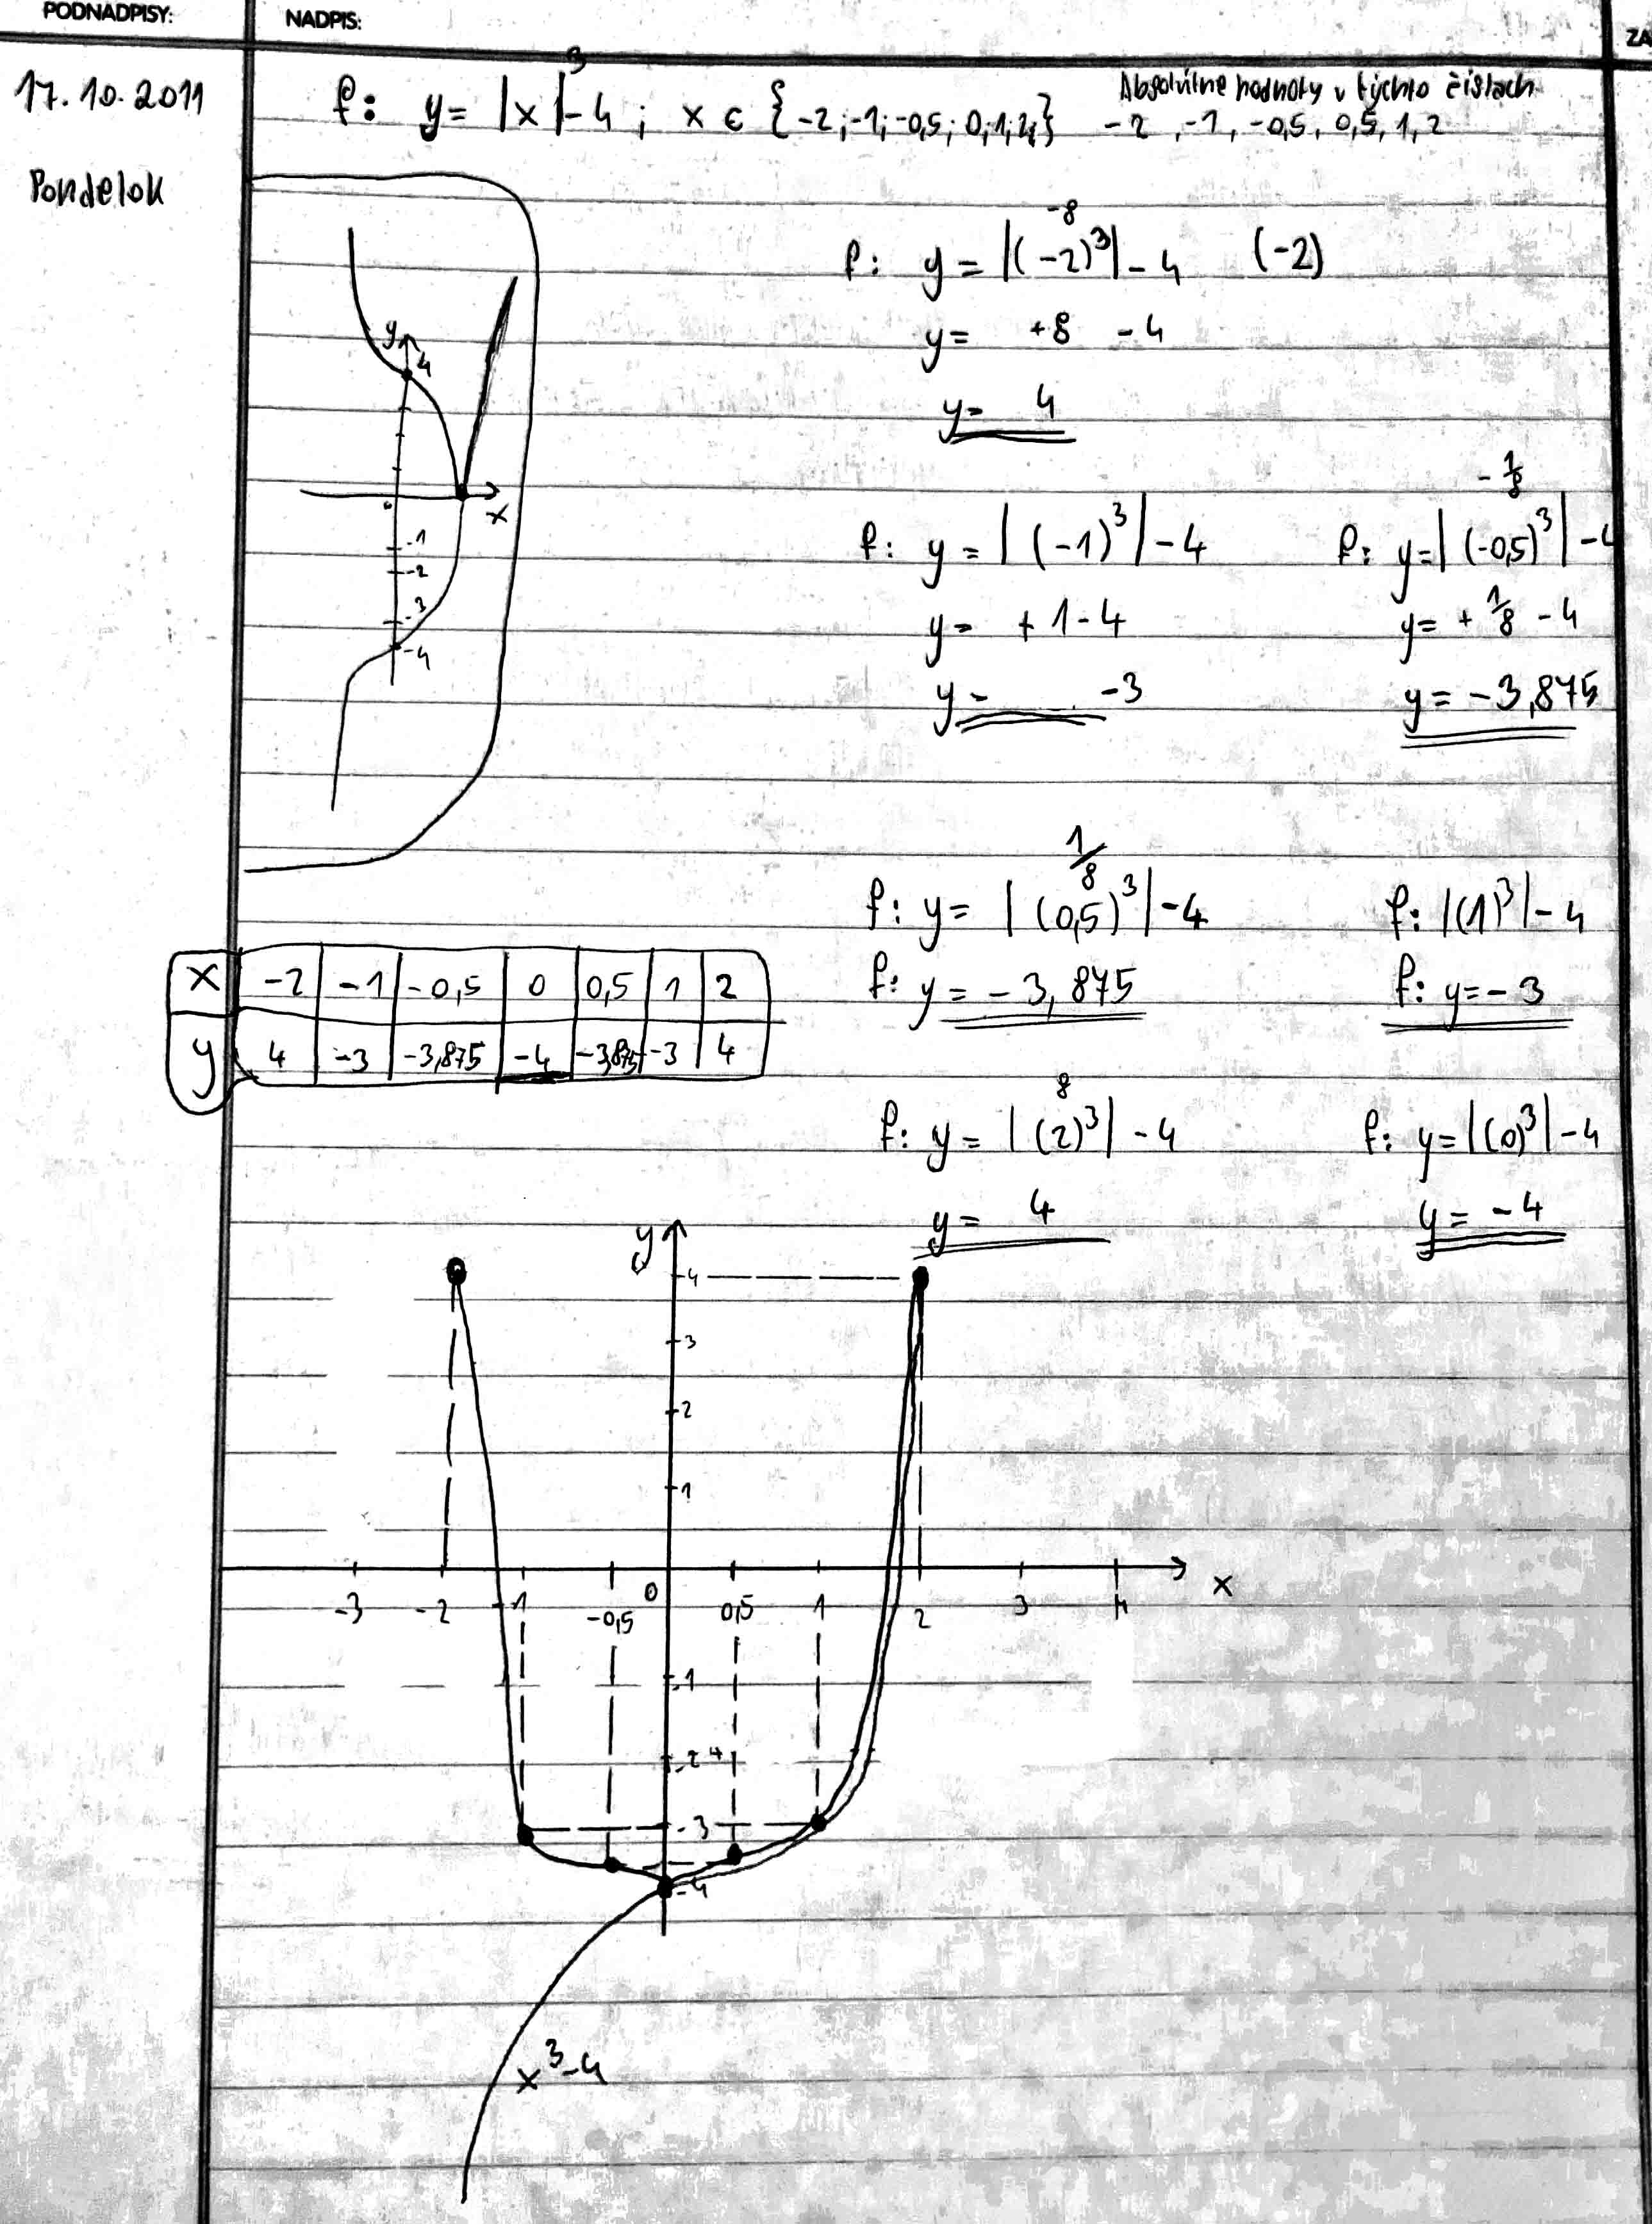 PODNADPISY: NADPIS: ZA
17.10.2011 f: y = |x|³ - 4 ; x ∈ {-2; -1; -0,5; 0, 1, 2,} Absolútne hodnoty v týchto číslach
-2, -1, -0,5, 0,5, 1, 2
Pondelok
y
4
x
0
-1
-2
-3
-4
-8
f: y = |(-2)³| - 4 (-2)
y = +8 - 4
y = 4
f: y = |(-1)³| - 4
y = + 1 - 4
y = -3
-1/8
f: y = |(-0,5)³| - 4
y = + 1/8 - 4
y = -3,875
1/8
f: y = |(0,5)³| - 4
f: y = -3,875
f: |(1)³| - 4
f: y = -3
x -2 -1 -0,5 0 0,5 1 2
y 4 -3 -3,875 -4 -3,875 -3 4
8
f: y = |(2)³| - 4
y = 4
f: y = |(0)³| - 4
y = -4
y
4
3
2
1
-3 -2 -1 -0,5 0 0,5 1 2 3 4 x
-1
-2
-3
-4
x³-4